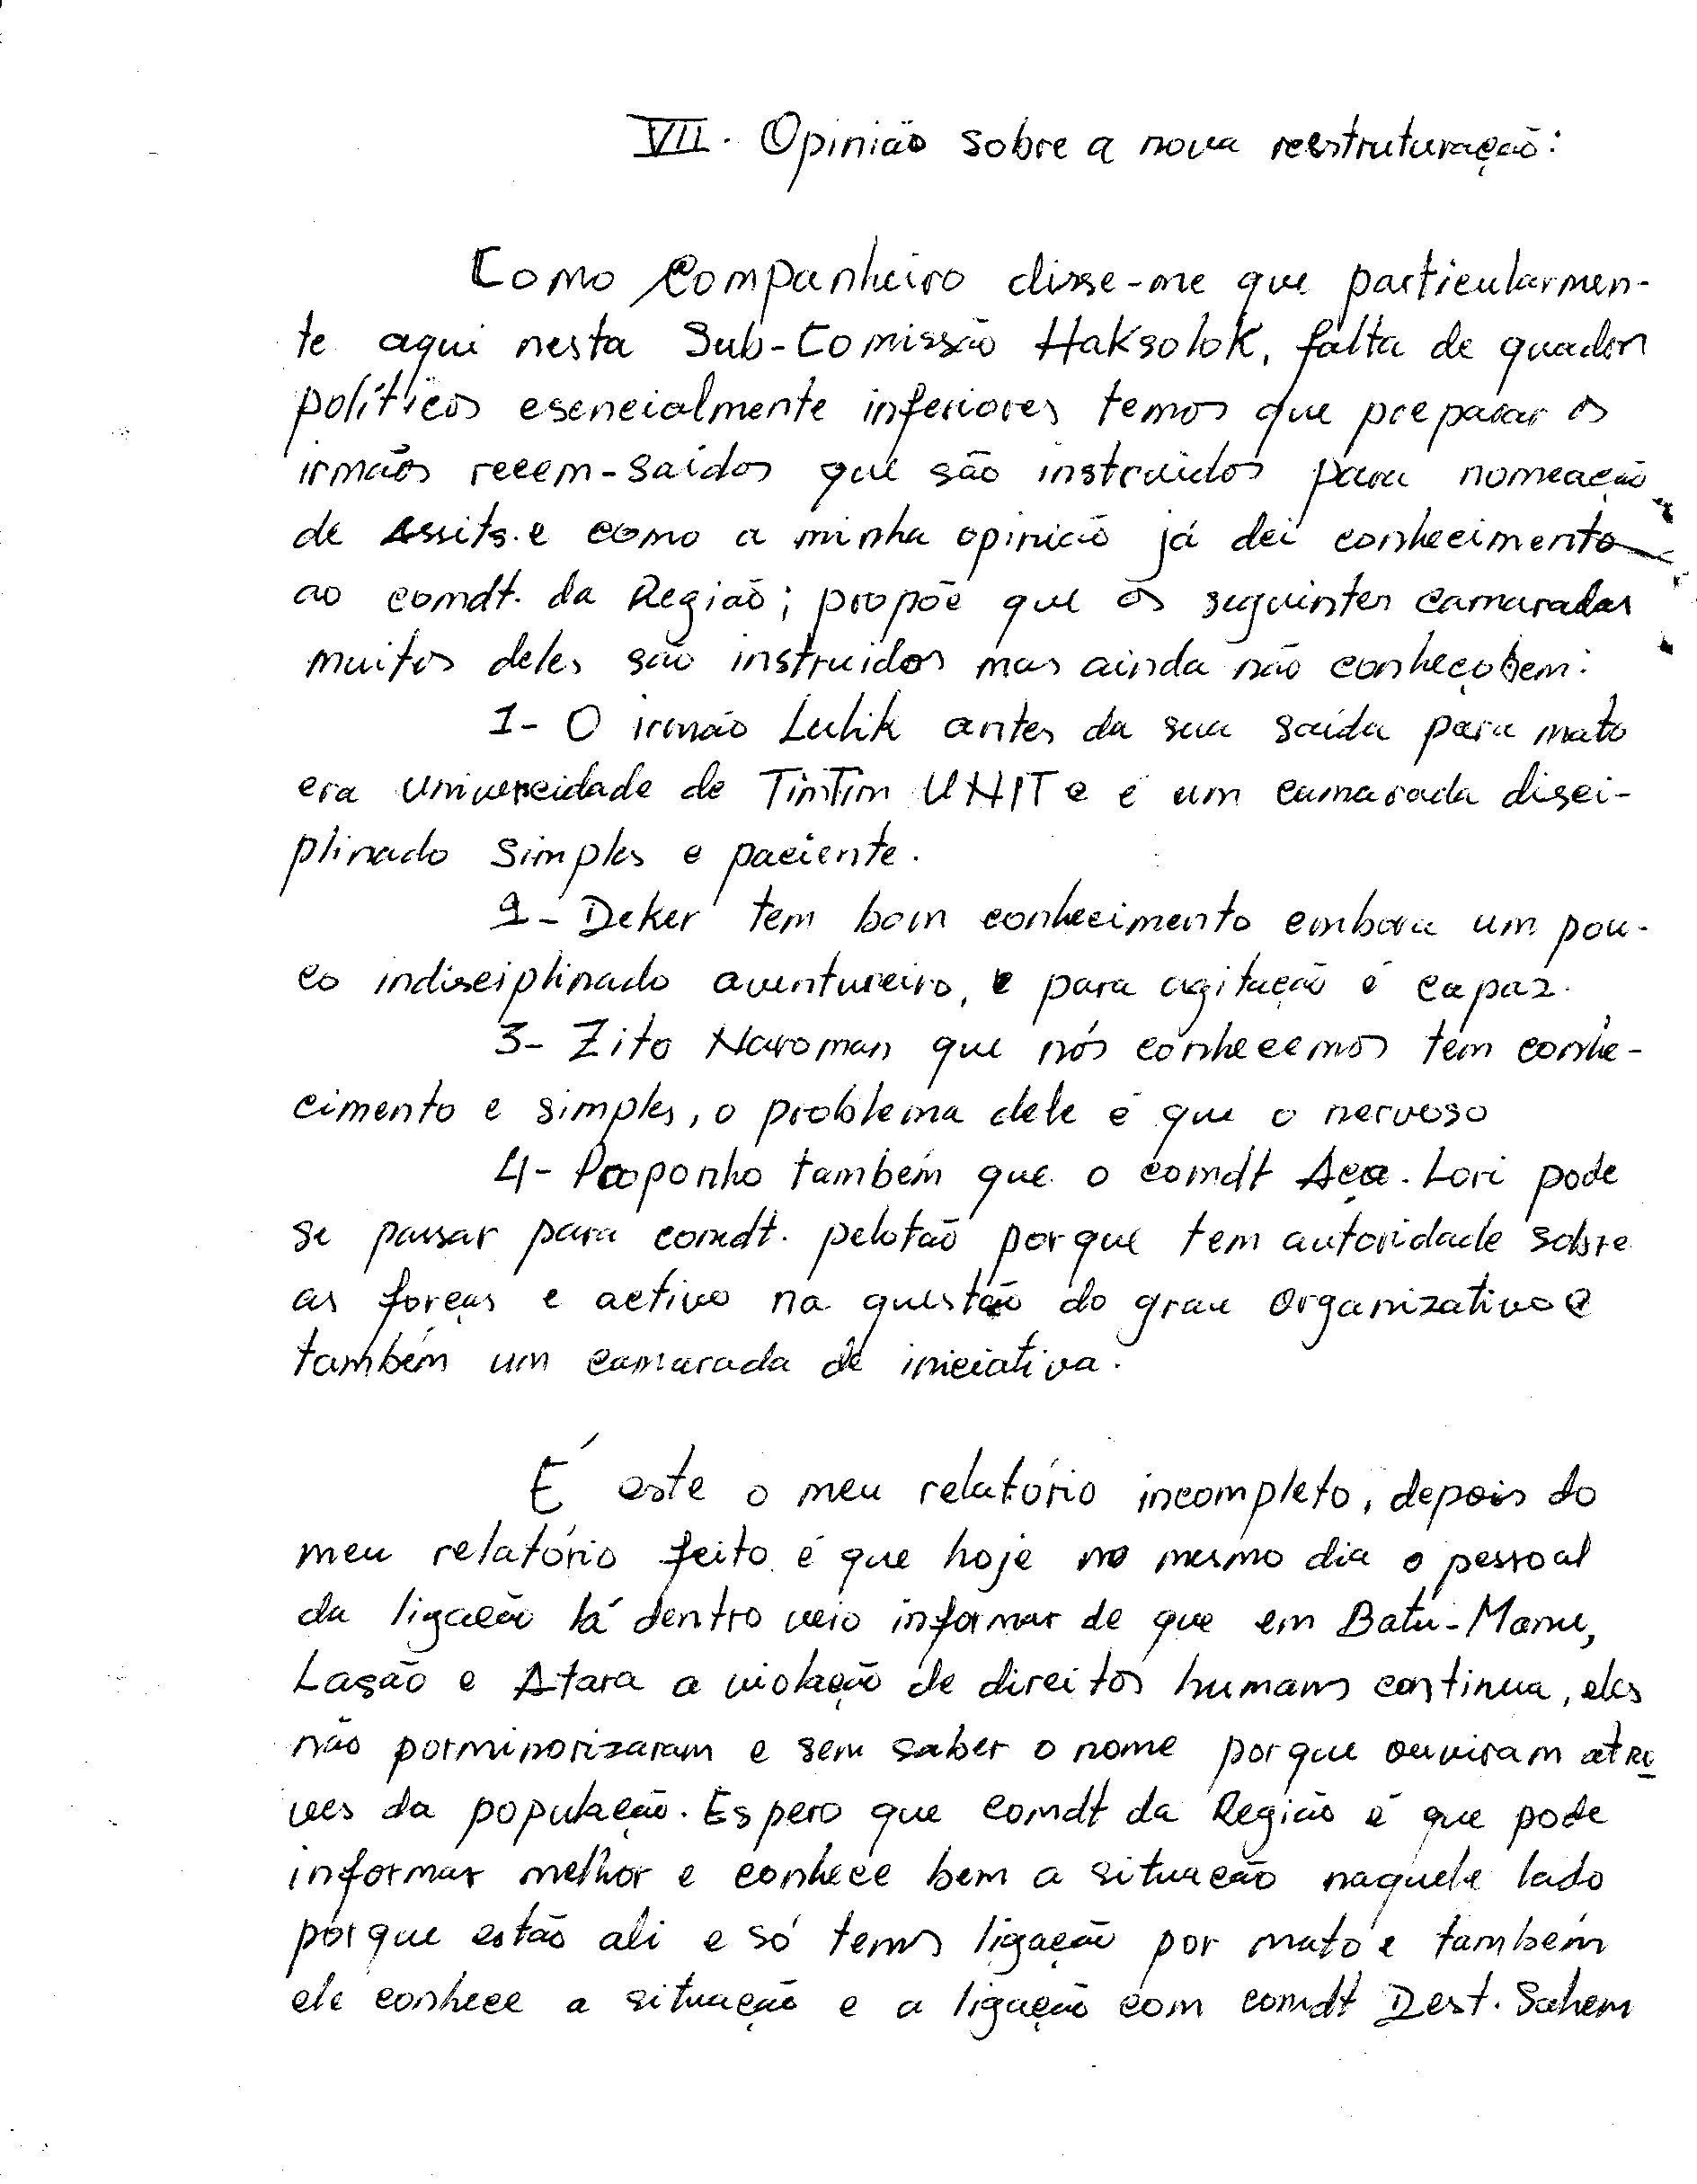 VII. Opinião sobre a nova reestruturação:
Como Companheiro disse-me que particularmen-
te aqui nesta Sub-Comissão Haksolok, falta de quadros
políticos esencialmente inferiores temos que preparar os
irmãos recem-saídos que são instruídos para nomeação
de Assits. e como a minha opinião já dei conhecimento
ao comdt. da Região; propõe que os seguintes camaradas
muitos deles são instruidos mas ainda não conheço bem:
1- O irmão Lulik antes da sua saída para mato
era Universidade de TimTim UNIT e é um camarada disci-
plinado simples e paciente.
2- Deker tem bom conhecimento embora um pou-
co indisciplinado aventureiro, e para agitação é capaz.
3- Zito Naroman que nós conhecemos tem conhe-
cimento e simples, o problema dele é que o nervoso
4- Proponho também que o comdt Aça. Lori pode
se passar para comdt. pelotão porque tem autoridade sobre
as forças e activo na questão do grau organizativo e
também um camarada de iniciativa.
É este o meu relatório incompleto, depois do
meu relatório feito é que hoje no mesmo dia o pessoal
da ligação lá dentro veio informar de que em Batu-Manu,
Lasão e Atara a violação de direitos humanos continua, eles
não porminorizaram e sem saber o nome porque ouviram atra
vés da população. Espero que comdt da Região é que pode
informar melhor e conhece bem a situação naquele lado
porque estão ali e só temos ligação por mato e também
ele conhece a situação e a ligação com comdt Dest. Sahem